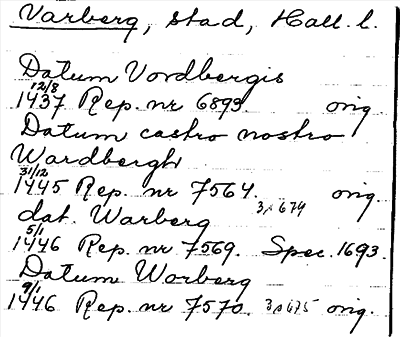 Varberg, stad, Hall. l.
Datum Vordbergis
12/8
1437 Rep. nr 6893. orig.
Datum castro nostro
Wardbergh
31/12
1445 Rep. nr 7564. orig.
3, 674
dat. Warberg
5/1
1446 Rep. nr 7569. Spec. 1693.
Datum Worberg
9/1
1446 Rep. nr 7570. 3, 675 orig.